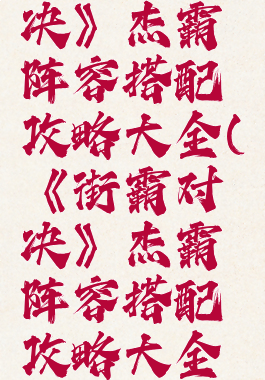 决》 杰霸
阵容搭配
攻略大全(
《街霸对
决》 杰霸
阵容搭配
攻略大全